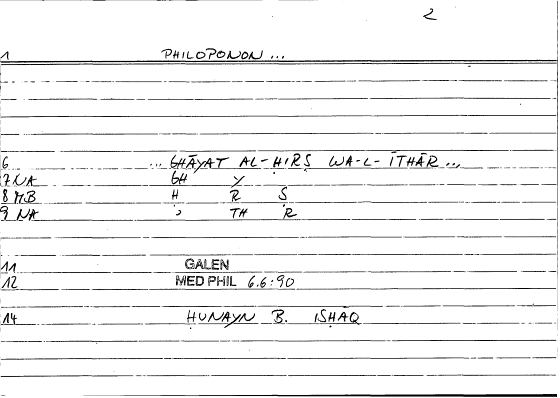 2
1 PHILOPONON ...
6 ... GHĀYAT AL-ḤIRṢ WA-L-ĪTHĀR ...
7 NA GH Y
8 MB Ḥ R Ṣ
9 NA ʾ TH R
11 GALEN
12 MED PHIL 6.6:90
14 ḤUNAYN B. ISḤĀQ